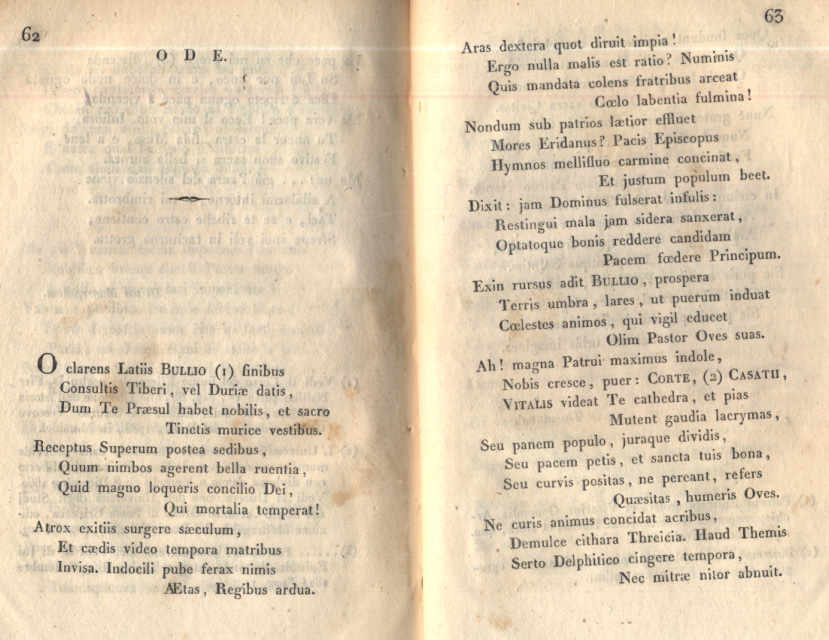 62
O D E.
O clarens Latiis BULLIO (1) finibus
Consultis Tiberi, vel Duriæ datis,
Dum Te Præsul habet nobilis, et sacro
Tinctis murice vestibus.
Receptus Superum postea sedibus,
Quum nimbos agerent bella ruentia,
Quid magno loqueris concilio Dei,
Qui mortalia temperat!
Atrox exitiis surgere sæculum,
Et cædis video tempora matribus
Invisa. Indocili pube ferax nimis
Ætas, Regibus ardua.
63
Aras dextera quot diruit impia!
Ergo nulla malis est ratio? Numinis
Quis mandata colens fratribus arceat
Cœlo labentia fulmina!
Nondum sub patrios lætior effluet
Mores Eridanus? Pacis Episcopus
Hymnos mellifluo carmine concinat,
Et justum populum beet.
Dixit: jam Dominus fulserat infulis:
Restingui mala jam sidera sanxerat,
Optatoque bonis reddere candidam
Pacem fœdere Principum.
Exin rursus adit BULLIO, prospera
Terris umbra, lares, ut puerum induat
Cœlestes animos, qui vigil educet
Olim Pastor Oves suas.
Ah! magna Patrui maximus indole,
Nobis cresce, puer: CORTE, (2) CASATII,
VITALIS videat Te cathedra, et pias
Mutent gaudia lacrymas,
Seu panem populo, juraque dividis,
Seu pacem petis, et sancta tuis bona,
Seu curvis positas, ne pereant, refers
Quæsitas, humeris Oves.
Ne curis animus concidat acribus,
Demulce cithara Threicia. Haud Themis
Serto Delphitico cingere tempora,
Nec mitræ nitor abnuit.